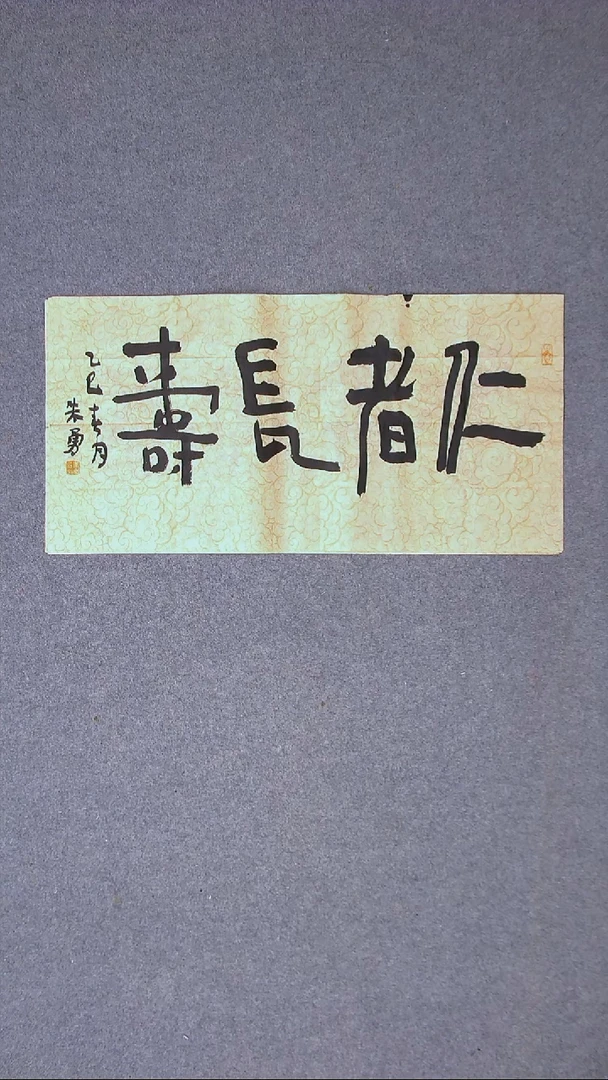 仁者長壽
乙巳春月
朱勇